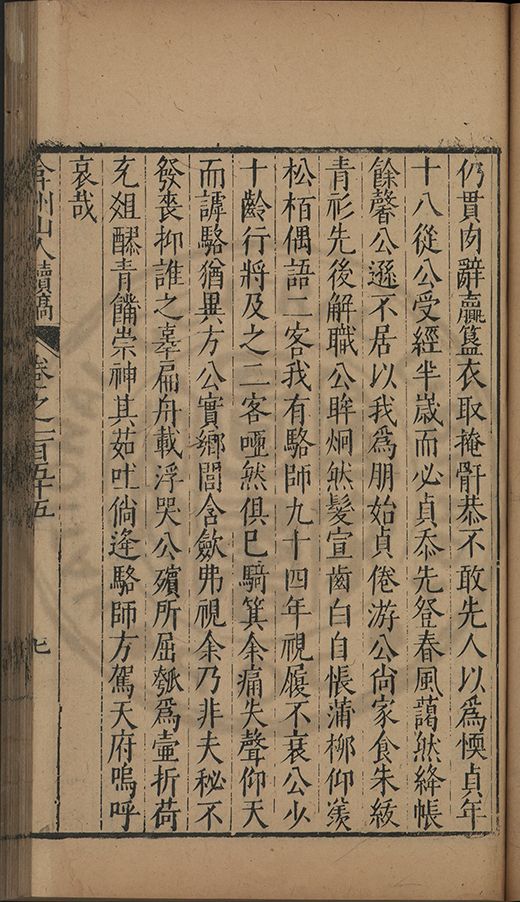 仍貫肉辭羸簋衣取掩骭恭不敢先人以爲懊貞年
十八從公受經半歲而必貞忝先登春風藹然絳帳
餘馨公遜不居以我爲朋始貞倦游公尙家食朱紱
青衫先後解職公眸炯然髮宣齒白自悵蒲柳仰羨
松栢偶語二客我有駱師九十四年視履不衰公少
十齡行將及之二客啞然俱巳騎箕余痛失聲仰天
而謼駱猶異方公實鄉閭含斂弗視余乃非夫秘不
發喪抑誰之辜扁舟載浮哭公殯所屈瓠爲壺折荷
充爼醪青饎崇神其茹吐倘逢駱師方駕天府嗚呼
哀哉
弇州山人續稿 卷之一百五十五 七